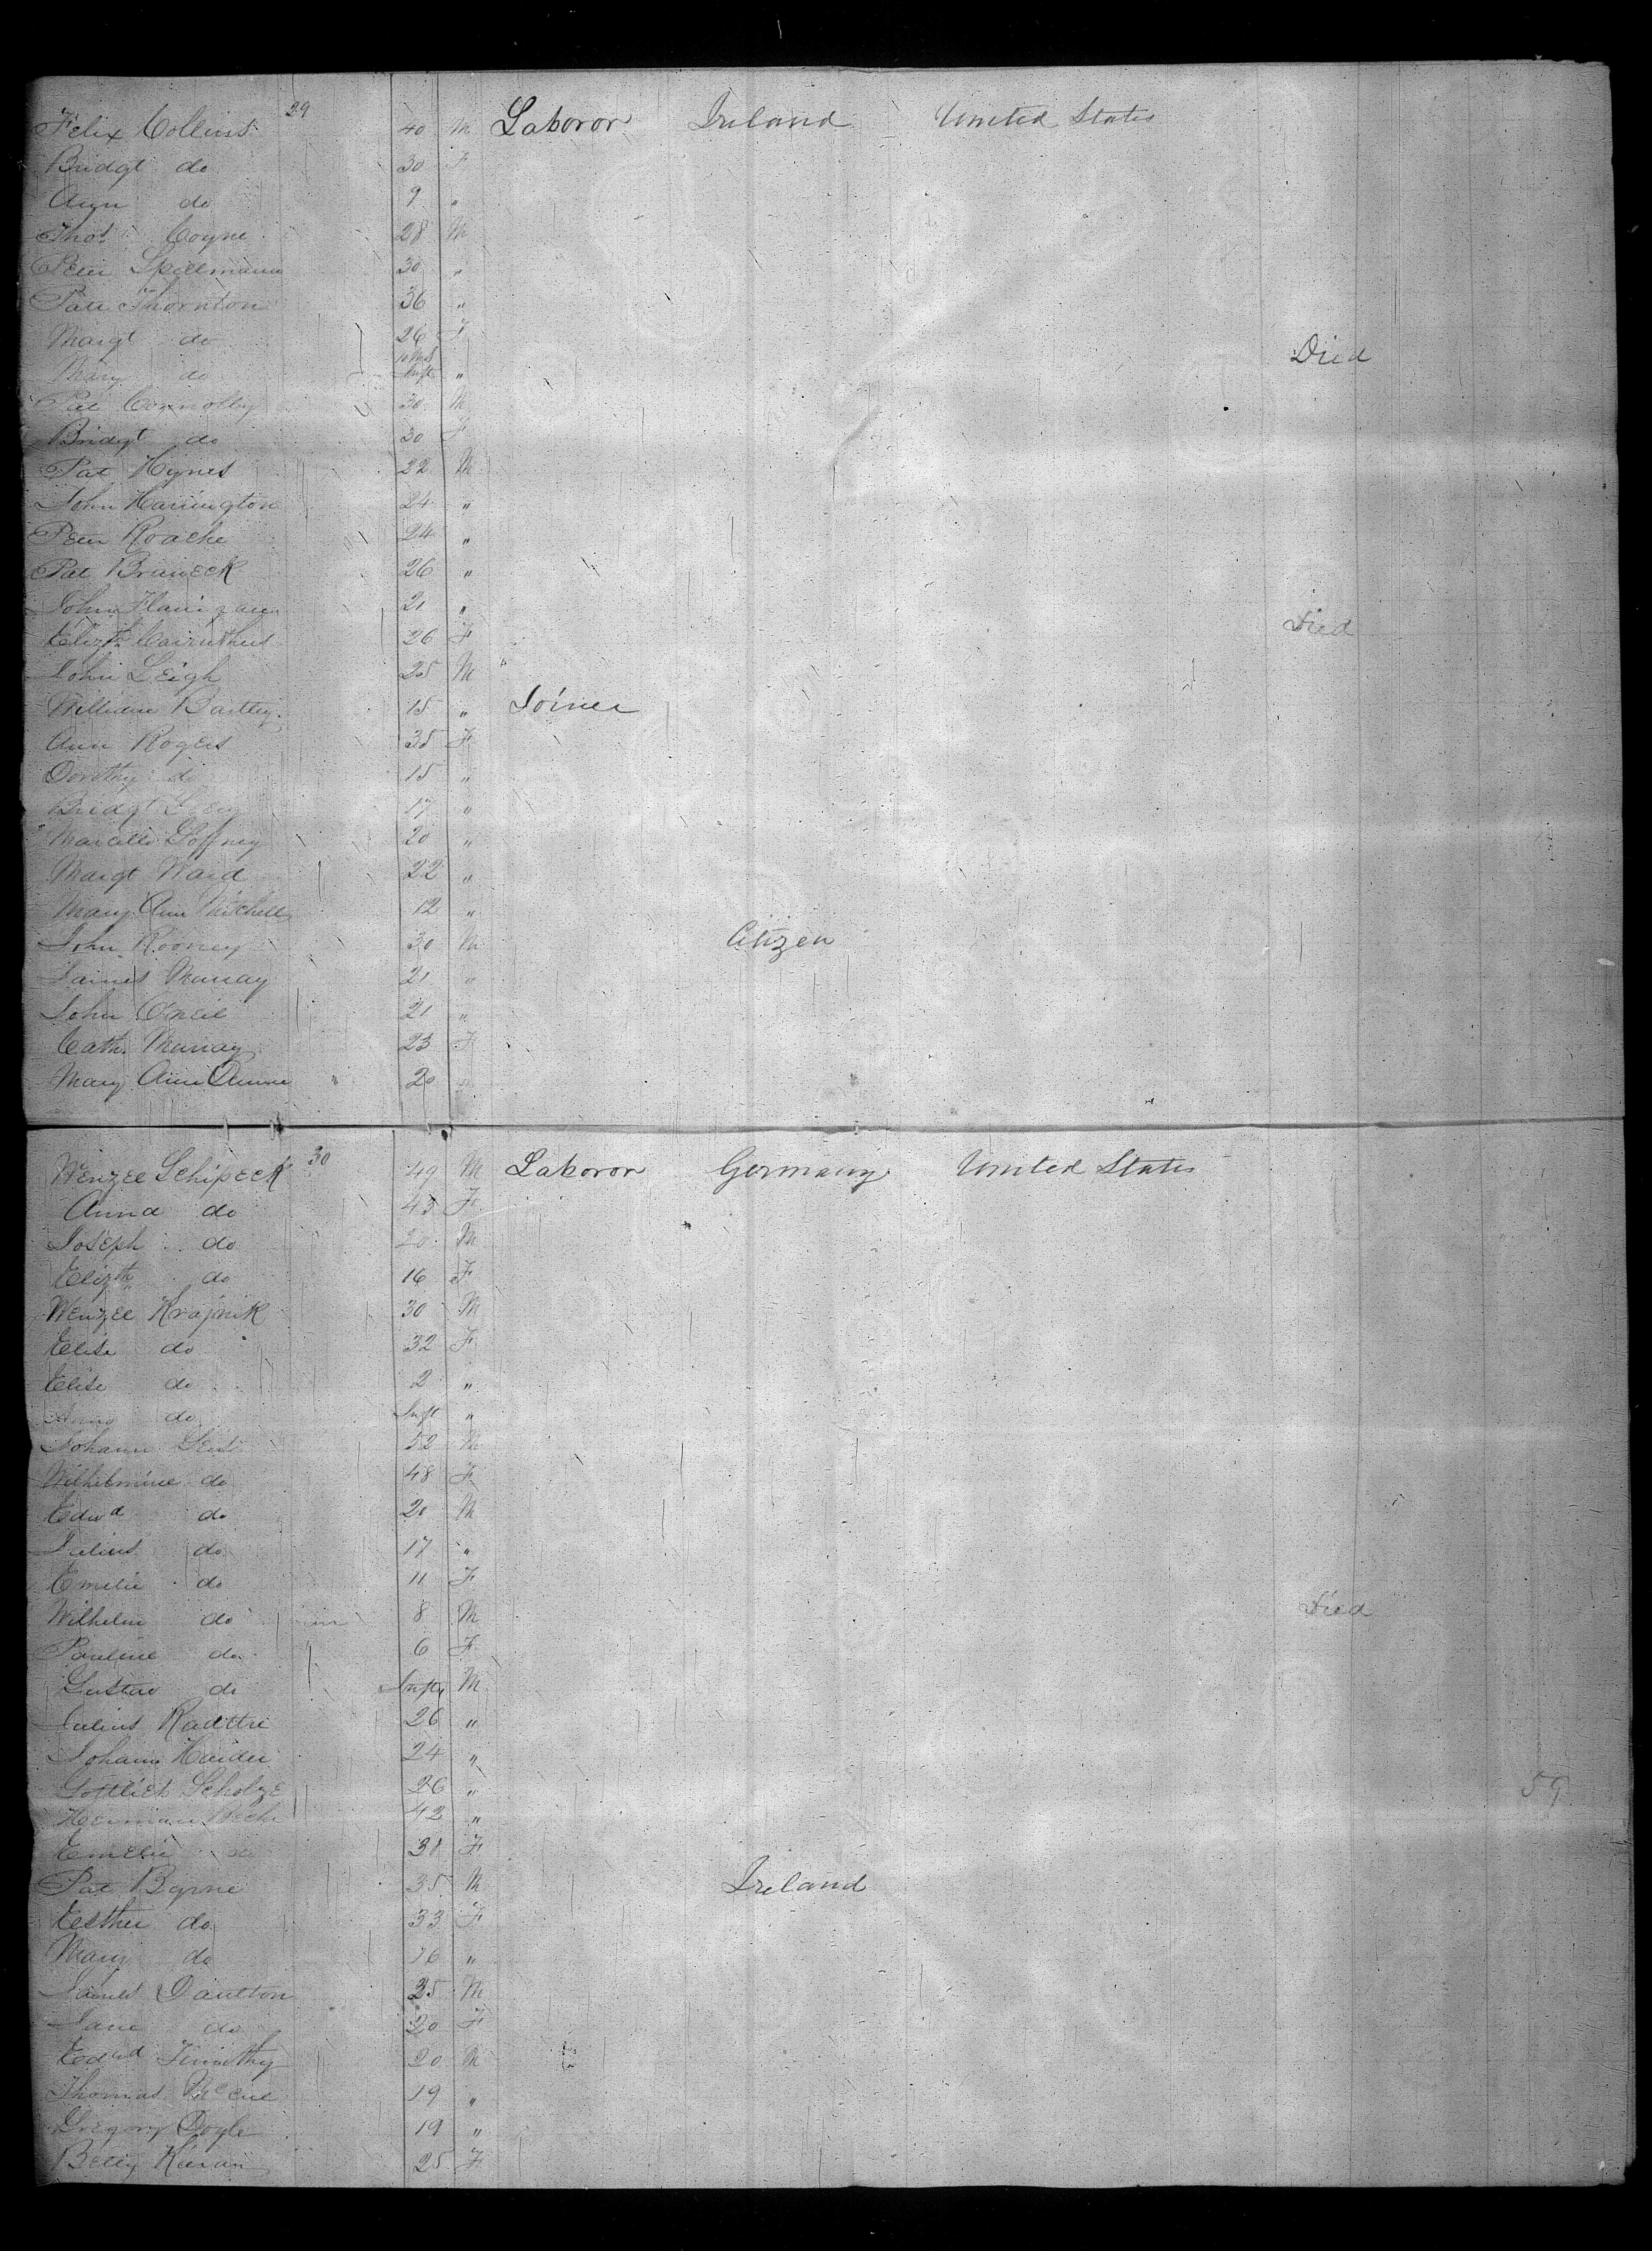 29
Felix Collins 40 M Laboror Ireland United States
Bridgt do 30 F
Ann do 9 "
Thos Coyne 28 M
Peter Spillmann 30 "
Patt Thornton 36 "
Margt do 26 F
Mary do 10 Mos Inft " Died
Pat Connolly 30 M
Bridgt do 30 F
Pat Hynes 22 M
John Harrington 24 "
Peter Roache 24 "
Pat 26 "
John Flanigann 21 "
Elizth Carruthers 26 F Died
John Leigh 25 M "
William Bartley 15 " Joiner
Ann Rogers 35 F
Dorothy do 15 "
Bridgt 17 "
Marcella Goffney 20 "
Margt Ward 22 "
Mary Ann Mitchell 12 "
John Rooney 30 M Citizen
James Murray 21 "
John O'Neil 21 "
Cath. Murray 23 F
Mary Ann 20 "
30
Wenzel Schipeck 49 M Laboror Germany United States
Anna do 43 F
Joseph do 20 M
Elizth do 16 F
Wenzel Krajnik 30 M
Elise do 32 F
Elise do 2 "
Anna do Inft "
Johann 52 M
Wilhelmine do 48 F
Edwd do 20 M
Julius do 17 "
Emelie do 11 F
Wilhelm do 8 M Died
Pauline do 6 F
Gustav do Inft M
Julius Radttre 26 "
Johann Haider 24 "
Gottlieb Scholze 26 " 59
Herman 42 "
Emelie do 31 F
Pat Byrne 35 M Ireland
Esther do 33 F
Mary do 16 "
James Daulton 25 M
Jane do 20 F
Edwd Timothy 20 M
Thomas McCue 19 "
Gregory Doyle 19 "
Betty Kieran 25 F